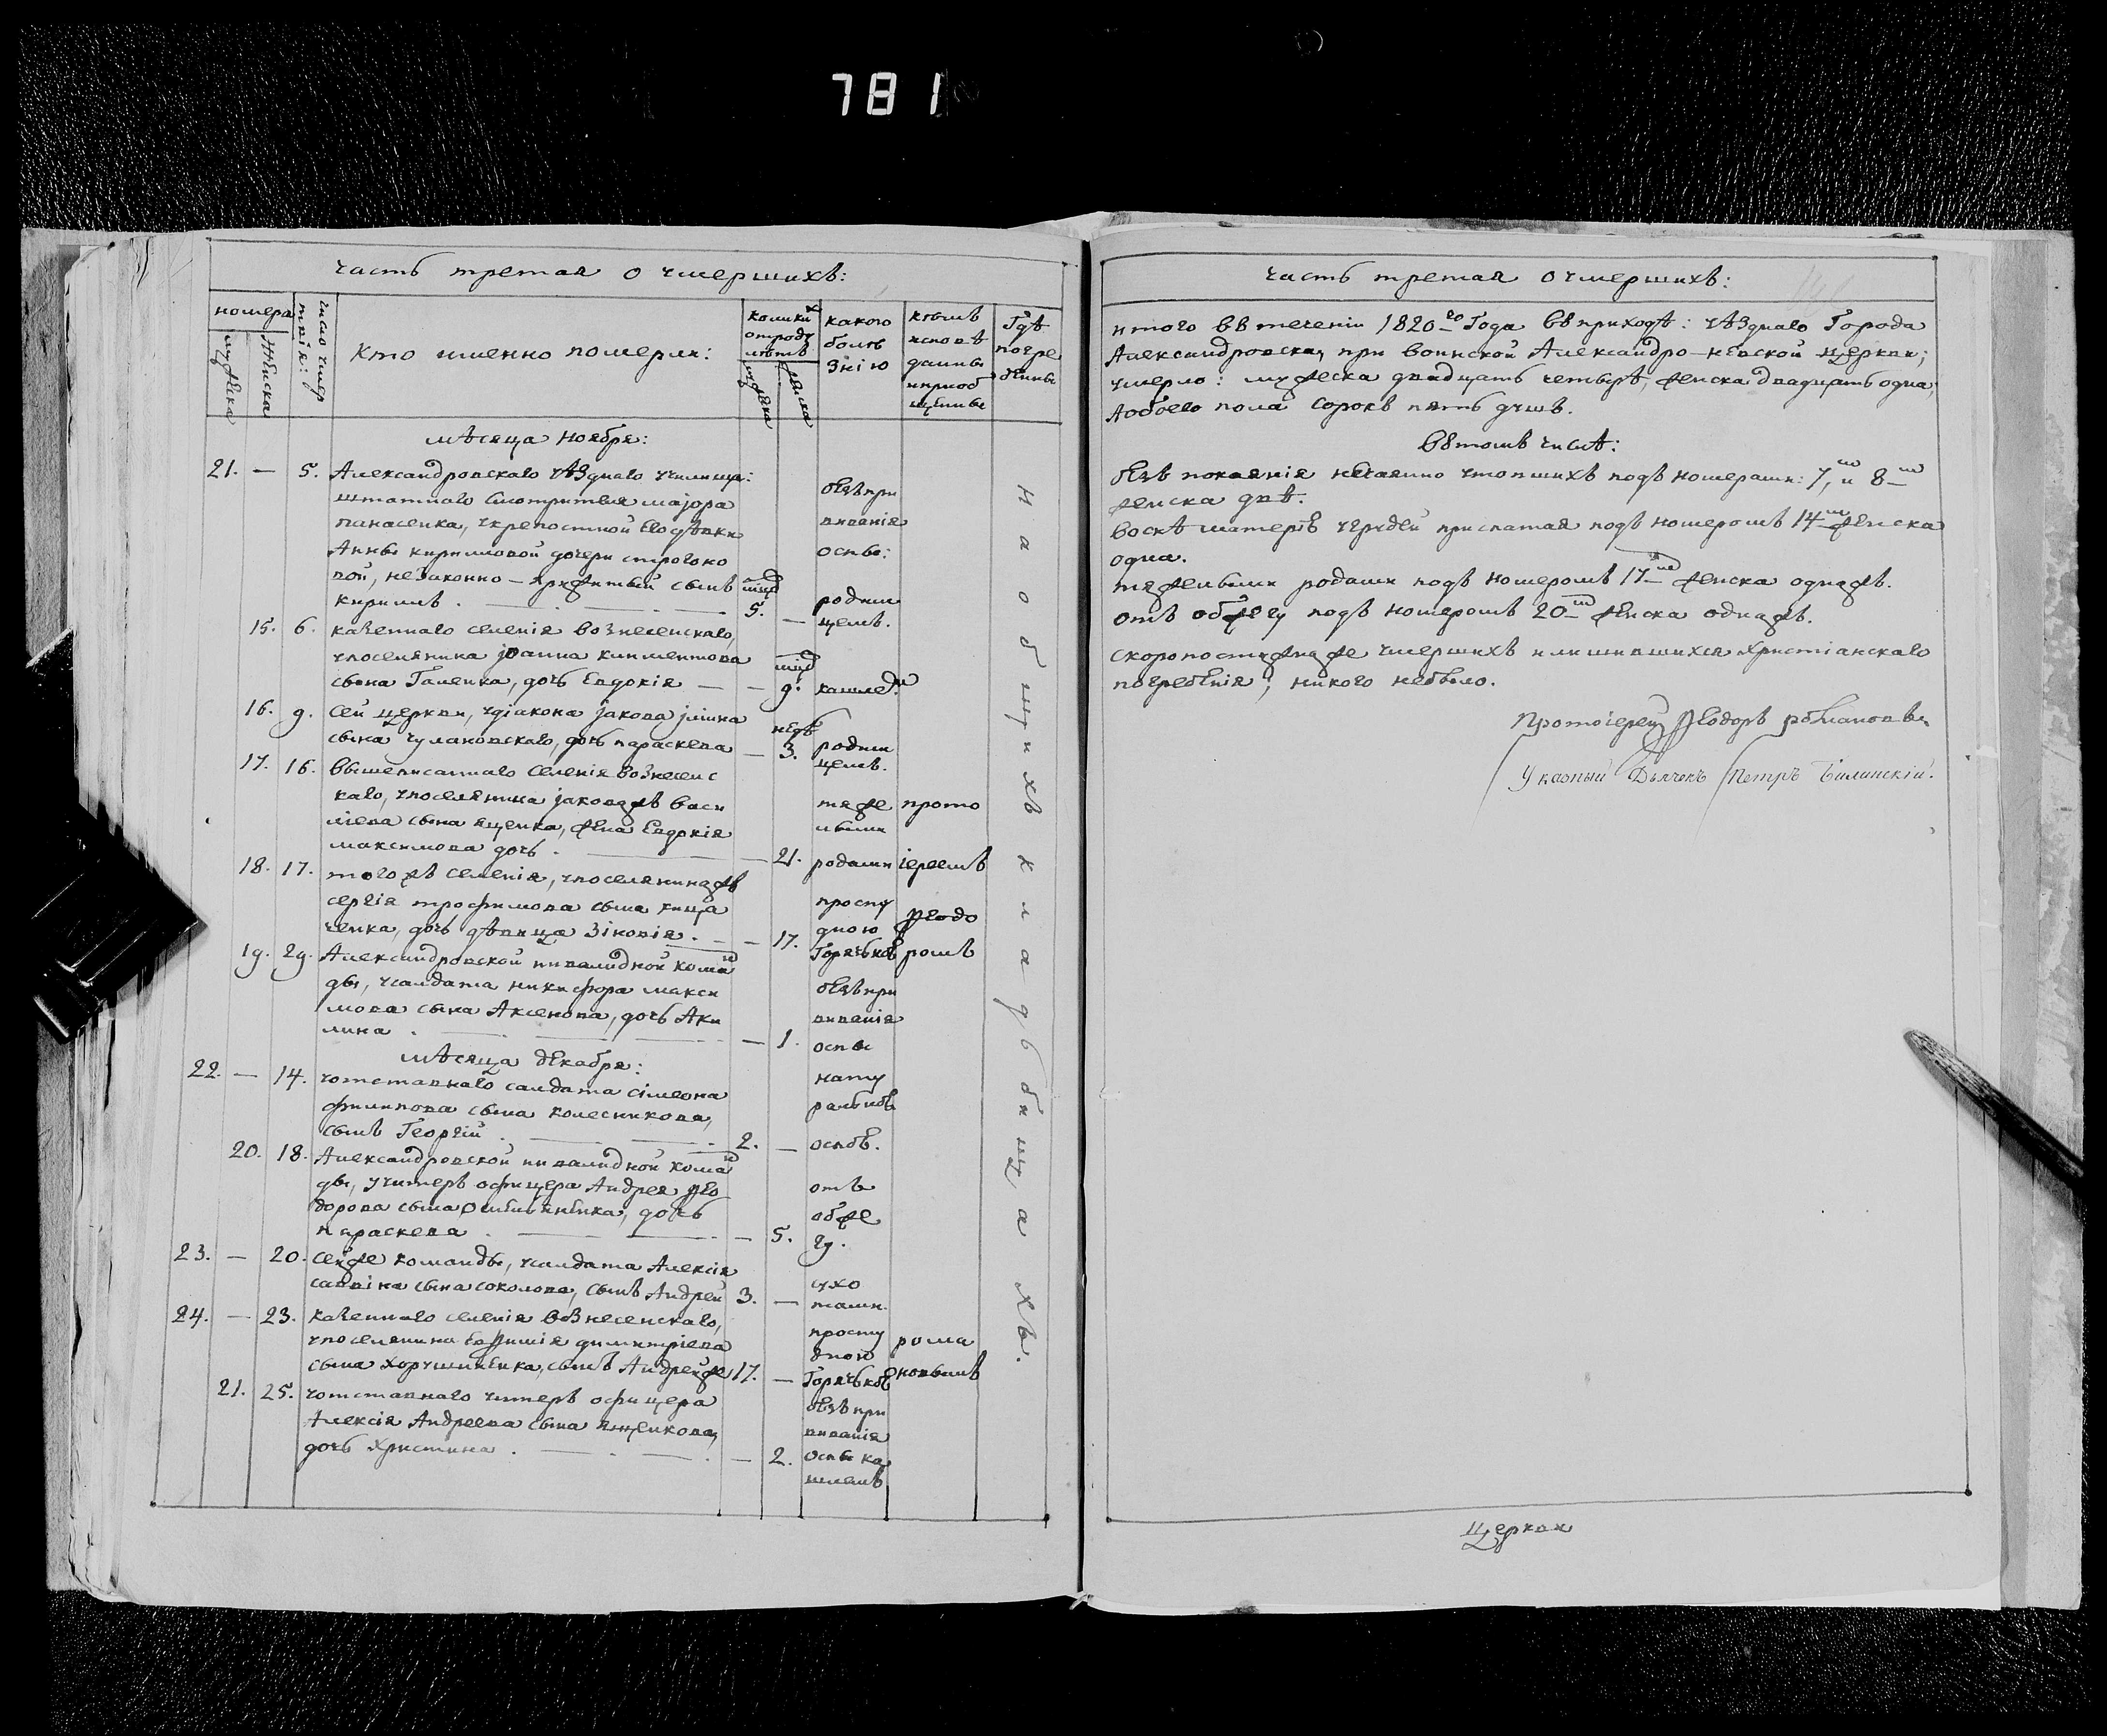 781
часть третая о умершихъ:
номера
мужеска
женска
число умер
трія:
кто именно померли:
колики^х
отродꙋ
лѣтъ
мужеска
женска
какого
болѣ
знію
кѣмъ
исповѣ
даны
ипріоб
щены
Гдѣ
погре
бены
мѣсяца Ноября:
21. — 5. Александровскаго уѣзднаго училища:
штатнаго смотрителя маіора
панасенка, укрепостной Его дѣвки
Анны кириловой дочери строгоно
вой, незаконно-прижитый сынъ
кирилъ . — . — . — 5. —
безъ при
виванія
оспы:
родим
цемъ.
15. 6. казеннаго селенія вознесенскаго,
упоселянина іоанна климентова
сына Галенка, дочь Евдокія — — 9. кашлемъ
16. 9. сей церкви, удіакона іакова іліина
сына чулановскаго, дочь параскева — 3.
недѣ
родим
цемъ.
17. 16. вышеписаннаго селенія вознесенс
каго, упоселянина іаковажъ васи
ліева сына яценка, жена Евдокія
максимова дочь . — — 21.
тяже
лыми
родами
прото
іереемъ
18. 17. того жъ селенія, упоселянинажъ
сергія трофимова сына кища
ченка, дочь дѣвица Зіновія . — — 17.
просту
дною
Горячкой
Ѳеодо
ромъ
19. 29. Александровской инвалидной коман
ды, усалдата никифора макси
мова сына Аксенова, дочь Аки
лина . — . — . — 1.
безъ при
виванія
оспы
мѣсяца декабря:
22. — 14. уотставнаго салдата сімеона
филипова сына колесникова,
сынъ Георгій . — . — . 2. —
нату
ральной
оспой.
20. 18. Александровской инвалидной коман
ды, унтеръ офицера Андрея Ѳео
дорова сына дочь
параскева . — — . — 5.
отъ
обже
гу.
23. — 20. сейже команды, усалдата Алексія
саввіна сына соколова, сынъ Андрей 3. —
сухо
тами.
24. — 23. казеннаго селенія вознесенскаго,
упоселянина Евфимія димитріева
сына хорушенка, сынъ Андрейже 17. —
просту
дною
Горячкой
рома
новымъ
21. 25. уотставнаго унтеръ офицера
Алексія Андреева сына ященкова,
дочь христина . — . — . — 2.
безъ при
виванія
оспы ка
шлемъ
на общихъ кладбищахъ.
часть третая о умершихъ:
итого въ теченіи 1820-го Года въ приходѣ: уѣзднаго Города
Александровска, при воинской Александро-невской церкви;
умерло: мужеска двадцать четыре, женска двадцать одна,
Аобоего пола сорокъ пять душъ.
въ томъ числѣ:
безъ покаянія нечаянно утопшихъ подъ номерами: 7, и 8-м
женска двѣ.
воснѣ матерѣ грудей приспатая подъ номеромъ 14-м женска
одна.
тяжелыми родами подъ номеромъ 17-м женска однажъ.
отъ обжегу подъ номеромъ 20-м женска однажъ.
скоропостижнаже умершихъ илишившихся христіанскаго
погребенія; никого небыло.
Протоіерей Ѳеодоръ романовъ
Указный Дьячекъ Петръ Билинскій.
Церкви